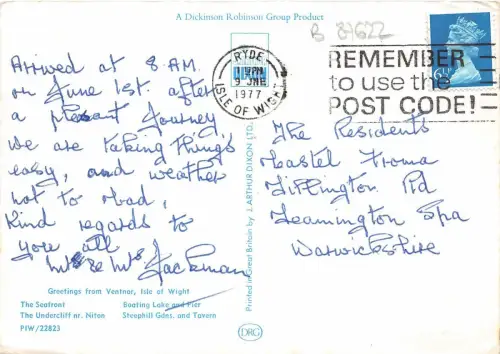 A Dickinson Robinson Group Product
B 37622
RYDE
PM
9 JNE
1977
ISLE OF WIGHT
REMEMBER
to use the
POST CODE!
Arrived at 8 A.M.
on June 1st. after
a pleasant Journey,
we are taking things
easy, and weather
not to bad,
Kind regards to
you all
Mr & Mrs Jackman
The Residents
Lillington Rd
Leamington Spa
Warwickshire
Printed in Great Britain by J. ARTHUR DIXON LTD.
Greetings from Ventnor, Isle of Wight
The Seafront Boating Lake and Pier
The Undercliff nr. Niton Steephill Gdns. and Tavern
PIW/22823
DRG